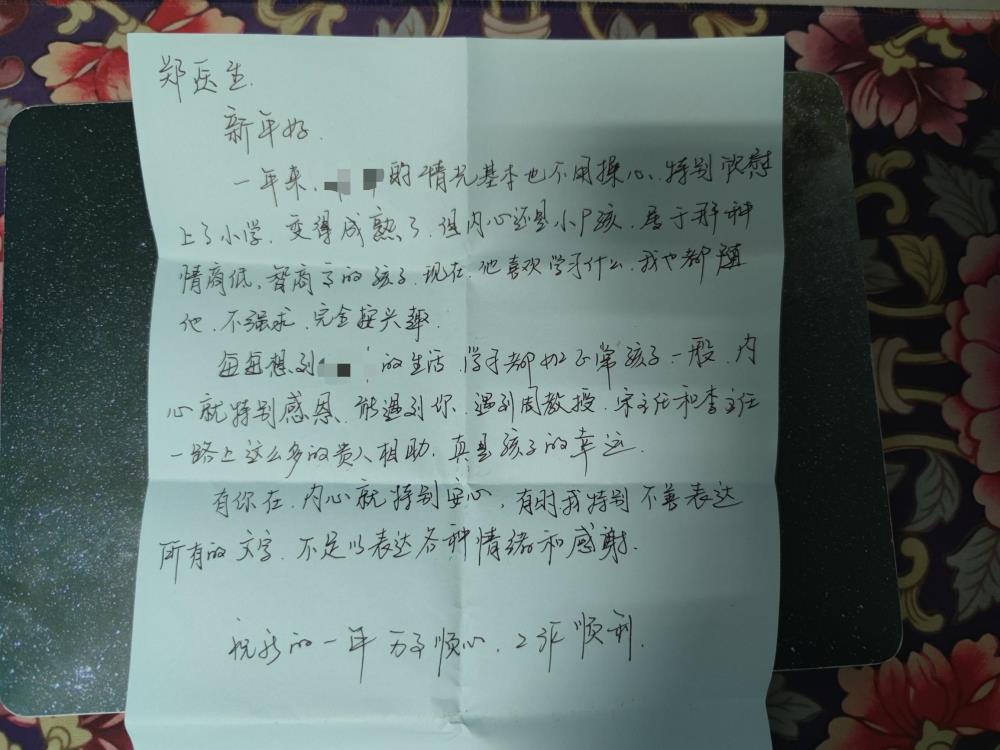 郑医生.
新年好.
一年来, 的情况基本也不用操心、特别欣慰
上了小学, 变得成熟了, 但内心还是小P孩, 属于那种
情商低, 智商高的孩子. 现在, 他喜欢学习什么, 我也都随
他, 不强求, 完全按兴趣.
每每想到 的生活, 学习都如正常孩子一般, 内
心就特别感恩、能遇到你, 遇到周教授, 宋主任和李主任
一路上这么多的贵人相助, 真是孩子的幸运.
有你在, 内心就特别安心, 有时我特别不善表达
所有的文字, 不足以表达各种情绪和感谢.
祝新的一年万事顺心, 工作顺利.